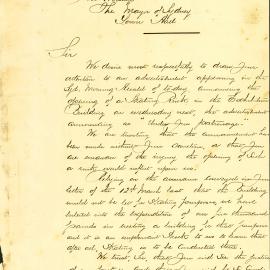 The Mayor of Sydney
Town Hall
Sir
We desire most respectfully to draw your
attention to an advertisement appearing in the
Syd. Morning Herald of today, announcing the
opening of a Skating Rink in the Exhibition
Building on Wednesday next, the advertisement
announcing as "Under
We are
been made without your sanction, or that you
are unaware of the injury the opening of such
a rink would inflict upon us.
Relying on the assurance conveyed in your
letter of the 12th March last that the building
would not be let for Skating purposes, we have
entered into the expenditure of
pounds in erecting a building for that purpose
and it is an unpleasant to us to learn that
after all, Skating is to be conducted there.
We trust, Sir, that you will see the justice